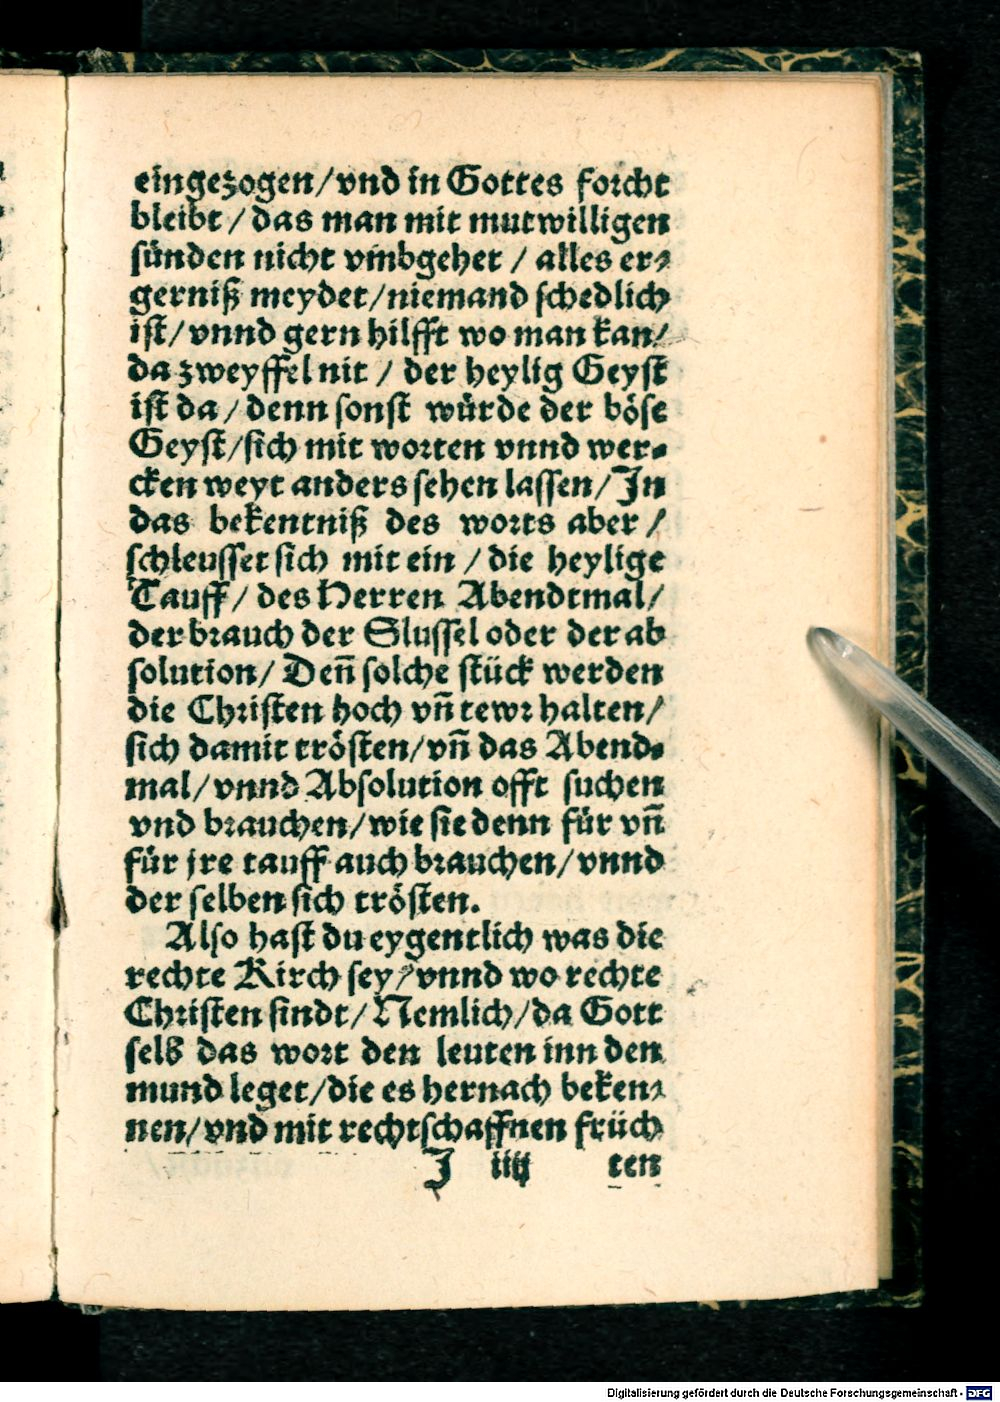 eingezogen/vnd in Gottes forcht
bleibt/das man mit mutwilligen
sünden nicht vmbgehet/alles er-
gerniß meydet/niemand schedlich
ist/vnnd gern hilfft wo man kan/
da zweyffel nit/der heylig Geyst
ist da/denn sonst würde der böse
Geyst/sich mit worten vnnd wer-
cken weyt anders sehen lassen/In
das bekentniß des worts aber/
schleusset sich mit ein/die heylige
Tauff/des Herren Abendtmal/
der brauch der Slussel oder der ab
solution/Deñ solche stück werden
die Christen hoch vñ tewr halten/
sich damit trösten/vñ das Abend-
mal/vnnd Absolution offt suchen
vnd brauchen/wie sie denn für vñ
für jre tauff auch brauchen/vnnd
der selben sich trösten.
Also hast du eygentlich was die
rechte Kirch sey/vnnd wo rechte
Christen sindt/Nemlich/da Gott
selb das wort den leuten inn den
mund leget/die es hernach beken-
nen/vnd mit rechtschaffnen früch
J iiij ten
Digitalisierung gefördert durch die Deutsche Forschungsgemeinschaft - DFG